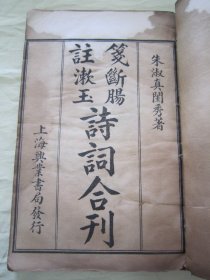 朱淑真閨秀著
箋斷腸
註漱玉
詩詞合刊
上海興業書局發行